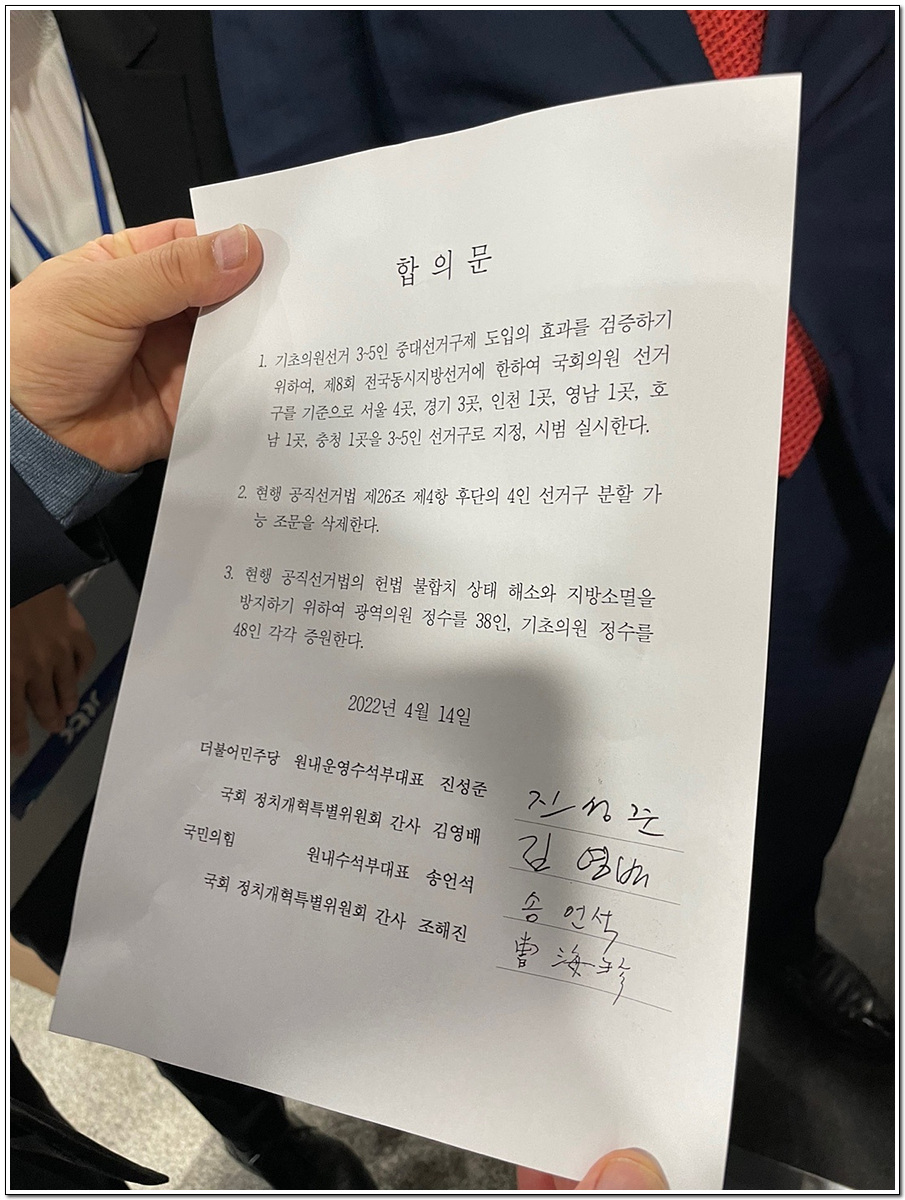 합 의 문
1. 기초의원선거 3~5인 중대선거구제 도입의 효과를 검증하기
위하여, 제8회 전국동시지방선거에 한하여 국회의원 선거
구를 기준으로 서울 4곳, 경기 3곳, 인천 1곳, 영남 1곳, 호
남 1곳, 충청 1곳을 3~5인 선거구로 지정, 시범 실시한다.
2. 현행 공직선거법 제26조 제4항 후단의 4인 선거구 분할 가
능 조문을 삭제한다.
3. 현행 공직선거법의 헌법 불합치 상태 해소와 지방소멸을
방지하기 위하여 광역의원 정수를 38인, 기초의원 정수를
48인 각각 증원한다.
2022년 4월 14일
더불어민주당 원내운영수석부대표 진성준 진성준
국회 정치개혁특별위원회 간사 김영배 김영배
국민의힘 원내수석부대표 송언석 송언석
국회 정치개혁특별위원회 간사 조해진 曺海珍